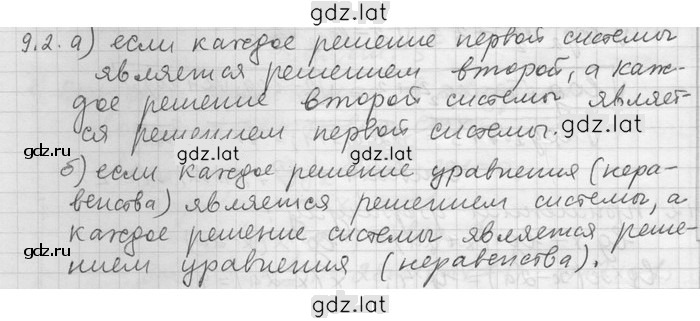 gdz.lat
9.2. а) если каждое решение первой системы
является решением второй, а каж-
дое решение второй системы являет-
ся решением первой системы.
gdz.ru gdz.lat gdz.ru
б) если каждое решение уравнения (нера-
венства) является решением системы, а
каждое решение системы является реше-
нием уравнения (неравенства).
gdz.ru gdz.ru
gdz.lat